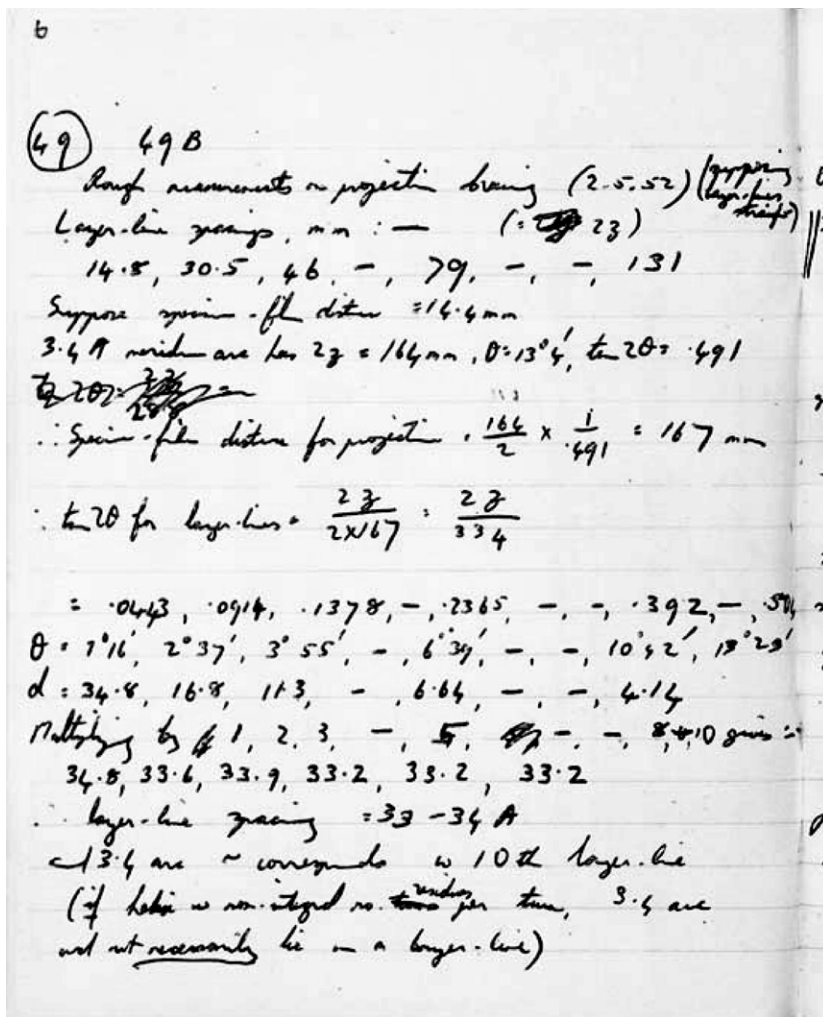 6
49 49B
Rough measurements on projection tracing (2.5.52) (supposing layer-lines straight)
Layer-line spacings, mm :— (= 2z)
14.8, 30.5, 46, –, 79, –, –, 131
Suppose specimen-film distance = 14.4 mm
3.4 Å meridian arc has 2z = 164 mm, θ = 13°4′, tan 2θ = .491
∴ Specimen-film distance for projection = 164/2 × 1/.491 = 167 mm
∴ tan 2θ for layer-lines = 2z/2×167 = 2z/334
= .0443, .0914, .1378, –, .2365, –, –, .392, –,
θ = 1°16′, 2°37′, 3°55′, –, 6°39′, –, –, 10°42′, 13°23′
d = 34.8, 16.8, 11.3, –, 6.64, –, –, 4.14
Multiplying by 1, 2, 3, –, 5, –, –, 8, 10 gives :-
34.8, 33.6, 33.9, 33.2, 33.2, 33.2
∴ layer-line spacing = 33 – 34 Å
3.4 arc ~ corresponds to 10th layer-line
(if helix has non-integral no. residues per turn, 3.4 arc
will not necessarily lie on a layer-line)